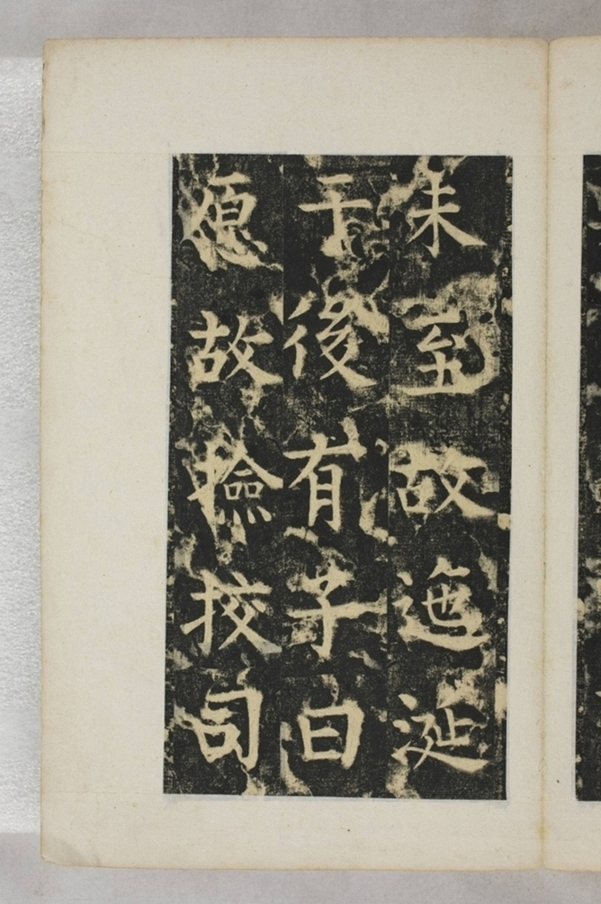 未至故涎
于後有子曰
愿故撿挍司